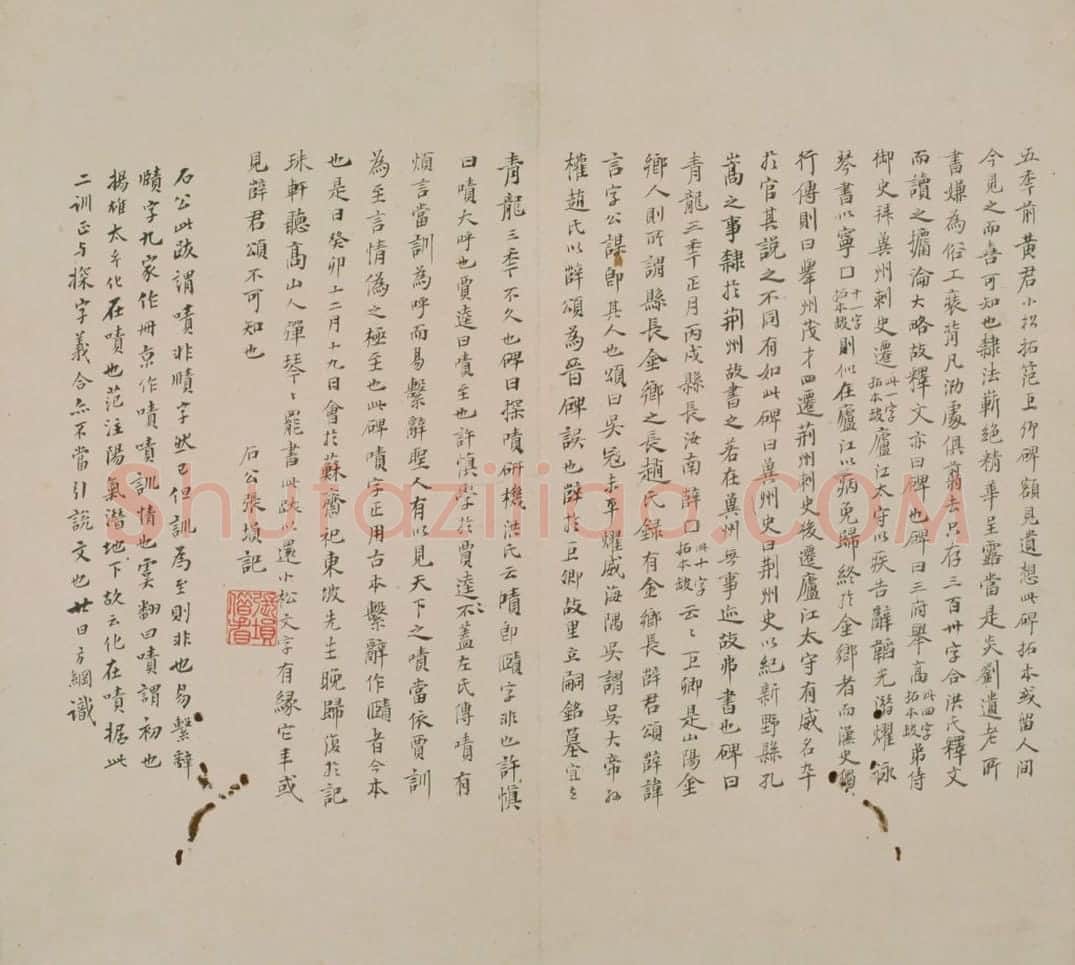 五年前黃君小松拓范巨卿碑額見遺想此碑拓本或留人間
今見之而喜可知也隸法嶄絕精華呈露當是炎劉遺老所
書嫌為俗工裝背凡泐處俱翦去只存三百卅字合洪氏釋文
而讀之擄淪大略故釋文亦曰碑也碑曰三府舉高此四字拓本缺弟侍
御史拜冀州刺史遷此一字拓本缺廬江太守以疾告辭韜光潛耀詠
琴書以寧口十一字拓本缺則似在廬江以病免歸終於金鄉者而漢史獨
行傳則曰舉州茂才四遷荊州刺史後遷廬江太守有威名卒
於官其說之不同有如此碑曰冀州史曰荊州史以紀新野縣孔
嵩之事隸於荊州故書之若在冀州無事迹故弗書也碑曰
青龍三年正月丙戌縣長汝南薛口此十字拓本缺云〻巨卿是山陽金
鄉人則所謂縣長金鄉之長趙氏錄有金鄉長薛君頌薛諱
言字公謀即其人也頌曰吳寇未平耀威海隅吳謂吳大帝孫
權趙氏以薛頌為晉碑誤也薛於巨卿故里立嗣銘墓宜去
青龍三年不久也碑曰探嘖研機洪氏云嘖即賾字非也許慎
曰嘖大呼也賈逵曰嘖至也許慎學於賈逵〻不蓋左氏傳嘖有
煩言當訓為呼而易繫辭聖人有以見天下之嘖當依賈訓
為至言情偽之極至也此碑嘖字正用古本繫辭作賾者今本
也是日癸卯十二月十九日會於蘇齋祀東坡先生晚歸復於記
珠軒聽高山人彈琴〻罷書此跋以還小松文字有緣它年或
見薛君頌不可知也
石公張塤記
張塤借書
石公此跋謂嘖非賾字然已但訓為至則非也易繫辭
賾字九家作冊京作嘖嘖訓情也虞翻曰嘖謂初也
揚雄太玄化在嘖也范注陽氣潛地下故云化在嘖據此
二訓正与探字義合亦不當引說文也廿日方綱識
Shufaziliao.com